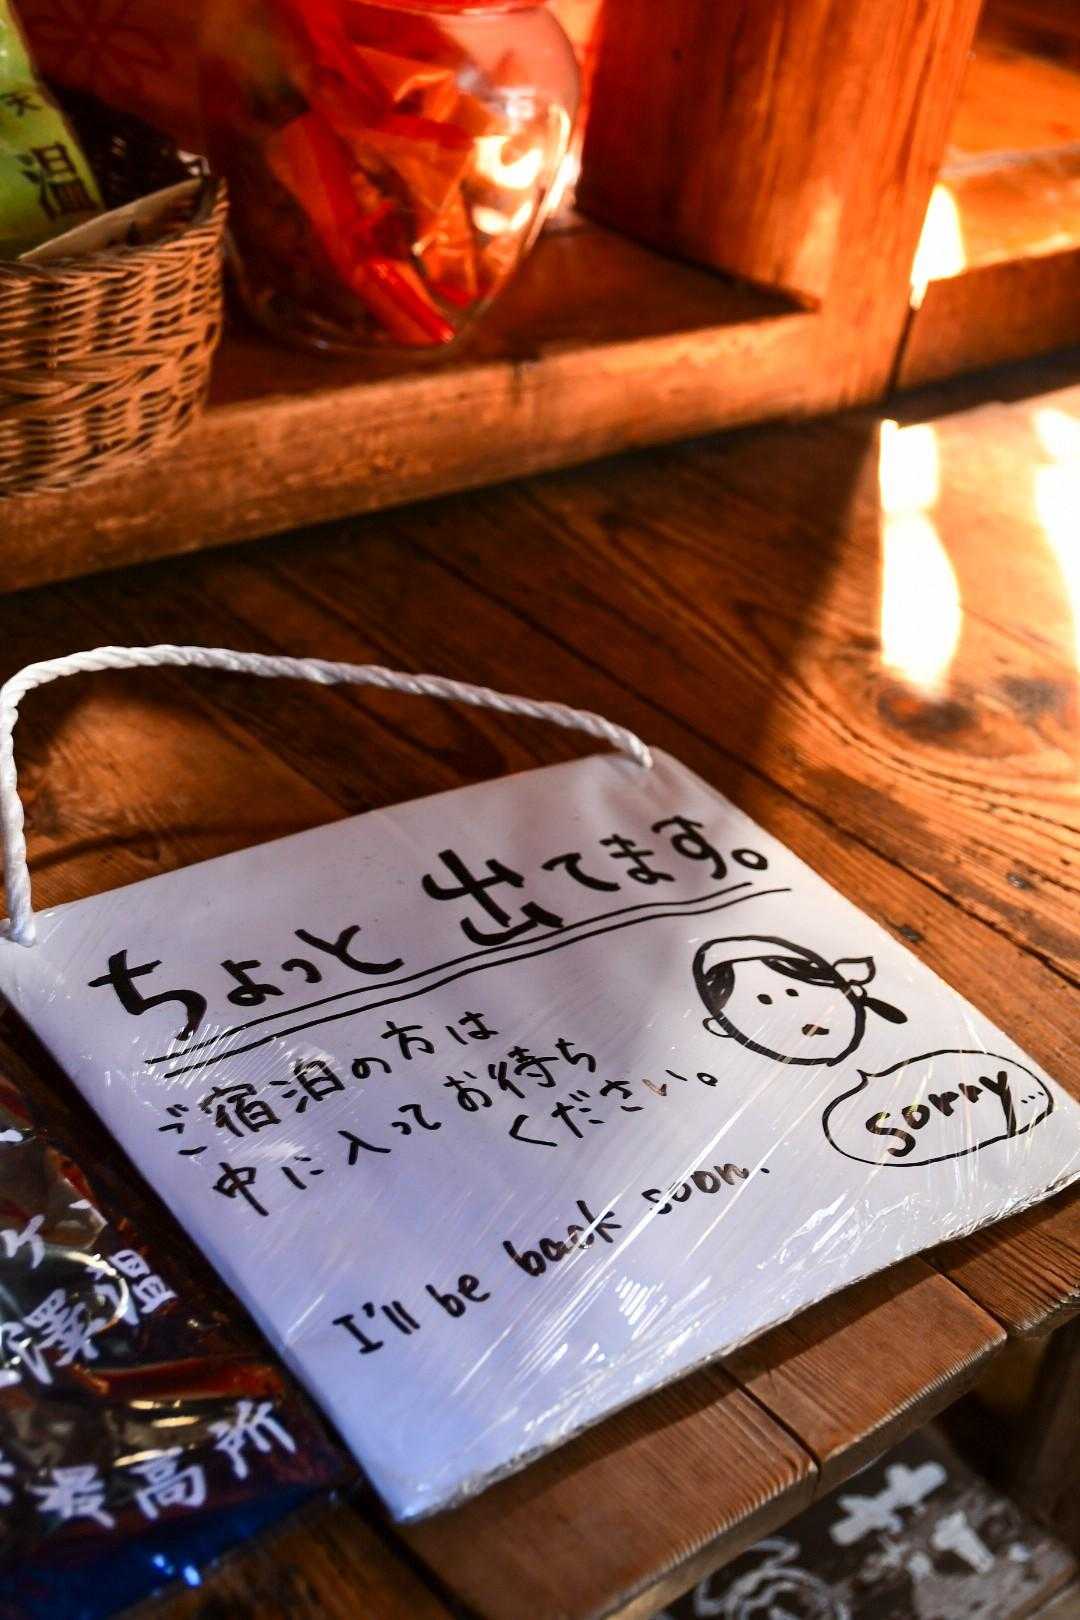 天
温
ちょっと 出てます。
ご宿泊の方は
中に入ってお待ち
ください。
sorry...
I'll be back soon.
ケ
澤温
最高所